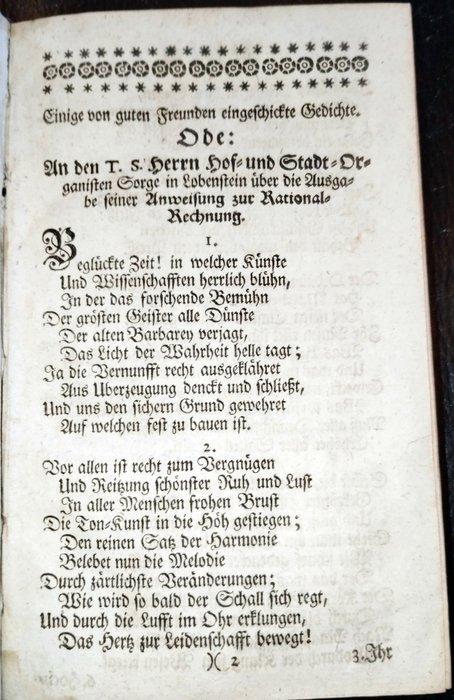 Einige von guten Freunden eingeschickte Gedichte.
Ode:
An den T. S. Herrn Hof- und Stadt-Or-
ganisten Sorge in Lobenstein über die Ausga-
be seiner Anweisung zur Rational-
Rechnung.
1.
Beglückte Zeit! in welcher Künste
Und Wissenschafften herrlich blühn,
In der das forschende Bemühn
Der grösten Geister alle Dünste
Der alten Barbarey verjagt,
Das Licht der Wahrheit helle tagt;
Ja die Vernunfft recht ausgeklähret
Aus Uberzeugung denckt und schließt,
Und uns den sichern Grund gewehret
Auf welchen fest zu bauen ist.
2.
Vor allen ist recht zum Vergnügen
Und Reitzung schönster Ruh und Lust
In aller Menschen frohen Brust
Die Ton-Kunst in die Höh gestiegen;
Den reinen Satz der Harmonie
Belebet nun die Melodie
Durch zärtlichste Veränderungen;
Wie wird so bald der Schall sich regt,
Und durch die Lufft im Ohr erklungen,
Das Hertz zur Leidenschafft bewegt!
)( 2 3. Ihr